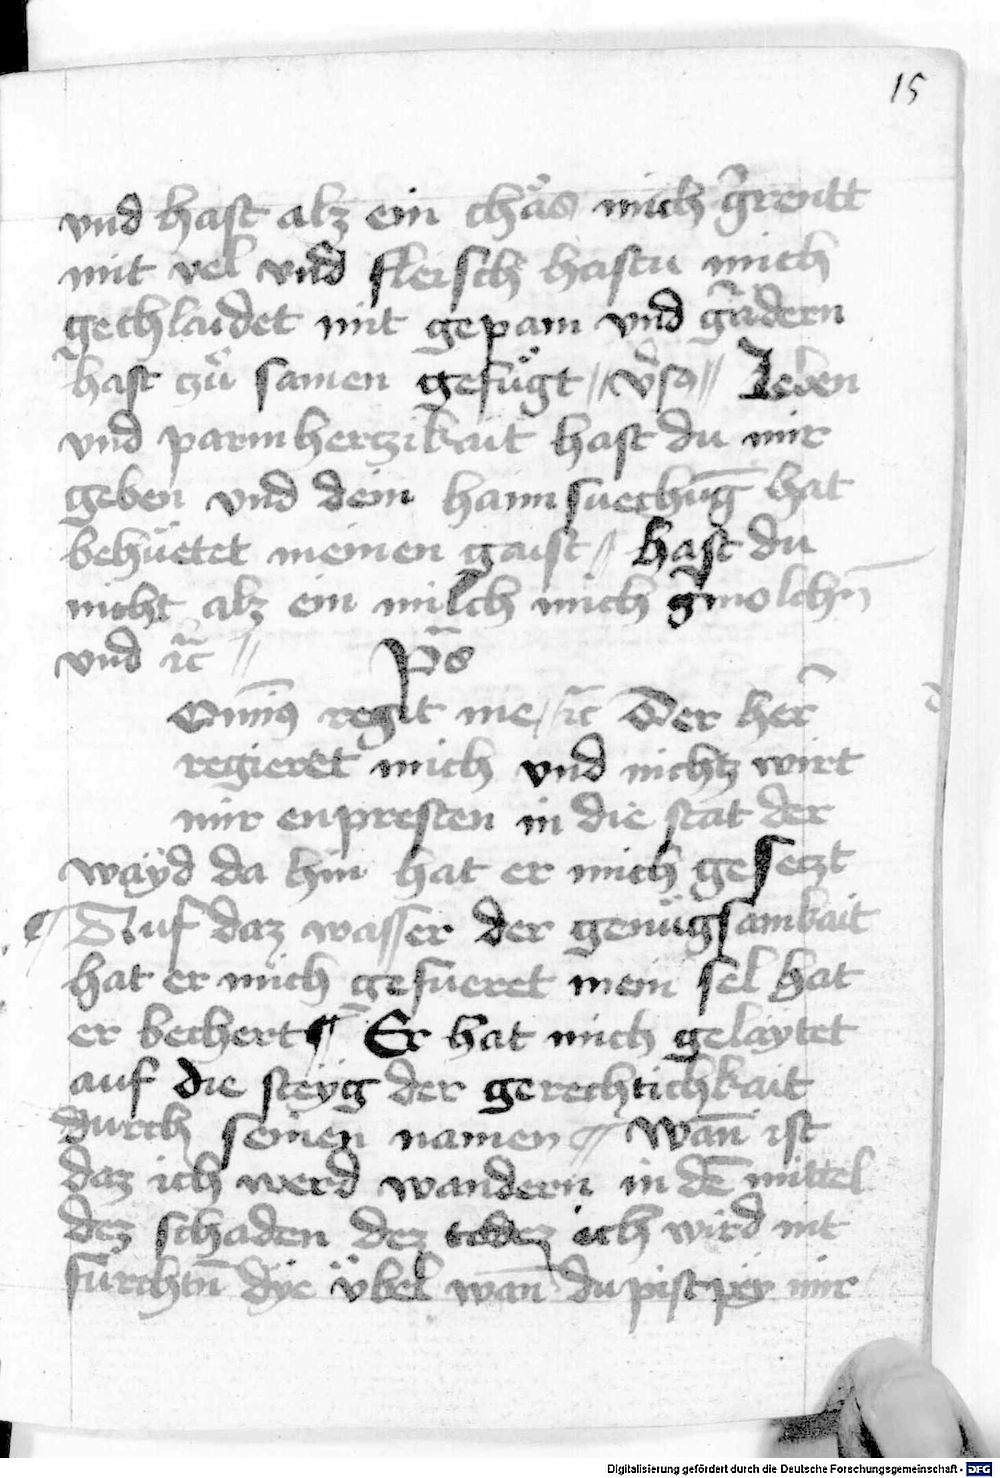 15
vnd hast alz ein chäs mich g̃rentt
mit vel vnd fleisch hastu mich
gechlaidet mit gepain vnd g̃ädern
hast zü samen gefügt // v̾s // Leben
vnd parmherczikait hast du mir
geben vnd dein haimsuechūg hat
behüetet meinen gaist // hast du
nicht alz ein milch mich g̃molchn̄
vnd ꝛc̃ // Ps̃
Ominꝰ regit me // ꝛc̃ Der her̃
regieret mich vnd nichtz wirt
mir enpresten in die stat der
wayd da hin hat er mich gesetzt
Auf daz wasser der genügsamkait
hat er mich gefueret mein sel hat
er bechert Er hat mich gelaytet
auf die steyg der gerechtichkait
durch seinen namen // Wan̄ ist
daz ich werd wandern in dē mittel
dez schaden dez todez ich wird nit
fürchtn̄ dye übel wan̄ du pist pey mir
Digitalisierung gefördert durch die Deutsche Forschungsgemeinschaft - DFG